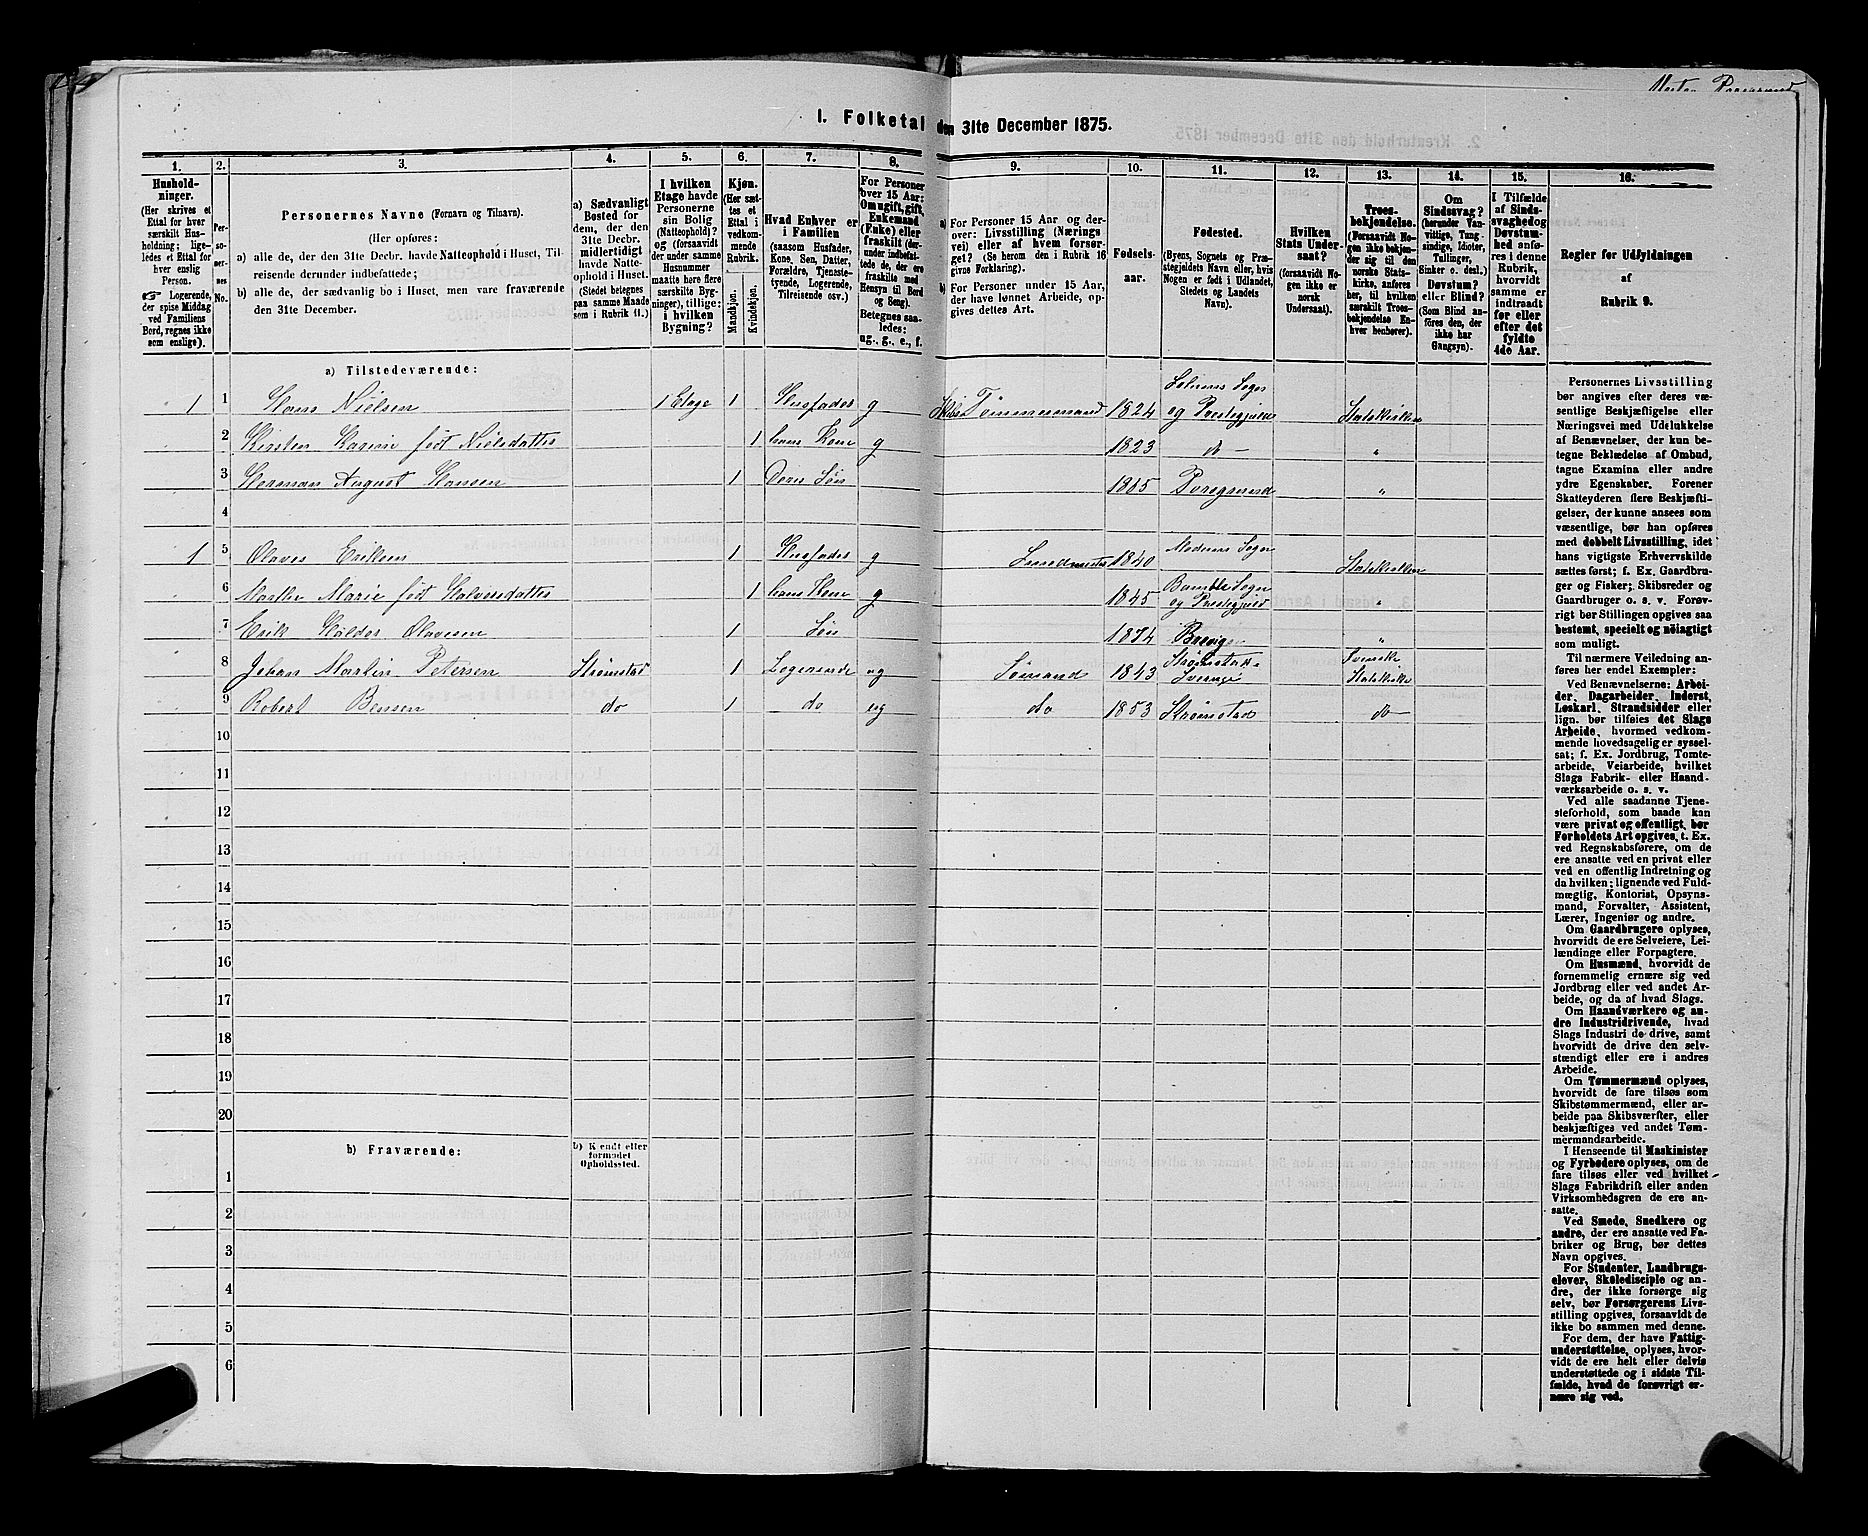 I. Folketal den 31te December 1875.
1. 2. 3. 4. 5. 6. 7. 8. 9. 10. 11. 12. 13. 14. 15. 16.
Hushold-
ninger.
(Her skrives et
Ettal for hver
særskilt Hus-
holdning; lige-
ledes et Ettal for
hver enslig
Person.
☞ Logerende,
der spise Middag
ved Familiens
Bord, regnes ikke
som enslige).
Per-
so-
ner-
nes
No.
Personernes Navne (Fornavn og Tilnavn).
(Her opføres:
a) alle de, der den 31te Decbr. havde Natteophold i Huset, Til-
reisende derunder indbefattede;
b) alle de, der sædvanlig bo i Huset, men vare fraværende
den 31te December.
a) Sædvanligt
Bosted for
dem, der den
31te Decbr.
midlertidigt
havde Natte-
ophold i Huset.
(Stedet betegnes
paa samme Maade
som i Rubrik 11.)
I hvilken
Etage havde
Personerne
sin Bolig
(Natteophold)?
og (forsaavidt
der under samme
Husnummer
maatte høre flere
særskilte Byg-
ninger), tillige:
i hvilken
Bygning?
Kjøn.
(Her sæt-
tes et
Ettal i
vedkom-
mende
Rubrik.
Mandkjøn.
Kvindekjøn.
Hvad Enhver er
i Familien
(saasom Husfader,
Kone, Søn, Datter,
Forældre, Tjeneste-
tyende, Logerende,
Tilreisende osv.)
For Personer
over 15 Aar:
Om ugift, gift,
Enkemand
(Enke) eller
fraskilt (der-
under indbefat-
tede de, der ere
fraskilte med
Hensyn til Bord
og Seng).
Betegnes saa-
ledes:
ug., g., e., f.
a) For Personer 15 Aar og der-
over: Livsstilling (Nærings
vei) eller af hvem forsør-
get? (Se herom den i Rubrik 16
givne Forklaring).
b) For Personer under 15 Aar,
der have lønnet Arbeide, op-
gives dettes Art.
Fødsels-
aar.
Fødested.
(Byens, Sognets og Præ-
stegjeldets Navn eller, hvis
Nogen er født i Udlandet,
Stedets og Landets
Navn).
Hvilken
Stats Under-
saat?
(forsaavidt No-
gen ikke er
norsk
Undersaat).
Troes-
bekjendelse.
(Forsaavidt No-
gen ikke bekjen-
der sig til den
norske Stats-
kirke, anføres
her, til hvilken
særskilt Troes-
bekjendelse En-
hver henhører).
Om
Sindssvag?
(herunder Van-
vittige, Tung-
sindige, Idioter,
Tullinger,
Sinker o. desl.)
Døvstum?
eller Blind?
(Som Blind an-
føres den, der
ikke har
Gangsyn).
I Tilfælde
af Sinds-
svaghed og
Døvstum-
hed anfø-
res i denne
Rubrik,
hvorvidt
samme er
indtraadt
før eller
efter det
fyldte
4de Aar.
Regler for Udfyldningen
af
Rubrik 9.
a) Tilstedeværende:
1 1 Hans Nielsen 1 Etage 1 Husfader g Skibs Tømmermand 1824 Solums Sogn og Prestegjeld Statskirken
2 Kirsten Karine født Nielsdatter 1 hans Kone g 1823 do - "
3 Herman August Hansen 1 Deres Søn 1865 Porsgrund "
4
1 5 Olaves Eriksen 1 Husfader g 1840 Sogn Statskirken
6 Marthe Marie født Halvorsdatter 1 hans Kone g 1845 Bamble Sogn og Prestegjeld "
7 Erik Olavesen 1 Søn 1874 Brevig "
8 Johan Martin Petersen Strømstad 1 Logerende ug Sømand 1843 Strømstad Sverige Svenske Statskirke
9 Robert Bensen do 1 do ug do 1853 Strømstad do
10
11
12
13
14
15
16
17
18
19
20
b) Fraværende:
b) Kjendt eller
formodet
Opholdssted.
1
2
3
4
5
6
Personernes Livsstilling
bør angives efter deres væ-
sentlige Beskjæftigelse eller
Næringsvei med Udelukkelse
af Benævnelser, der kun be-
tegne Beklædelse af Ombud,
tagne Examina eller andre
ydre Egenskaber. Forener
Skatteyderen flere Beskjæfti-
gelser, der kunne ansees som
væsentlige, bør han opføres
med dobbelt Livsstilling, idet
hans vigtigste Erhvervskilde
sættes først; f. Ex. Gaardbru-
ger og Fisker; Skibsreder og
Gaardbruger o. s. v. Forøv-
rigt bør Stillingen opgives saa
bestemt, specielt og nøiagtigt
som muligt.
Til nærmere Veiledning an-
føres her endel Exempler:
Ved Benævnelserne: Arbei-
der, Dagarbeider, Inderst,
Løskarl, Strandsidder eller
lign. bør tilføies det Slags
Arbeide, hvormed vedkom-
mende hovedsagelig er syssel-
sat; f. Ex. Jordbrug, Tomte-
arbeide, Veiarbeide, hvilket
Slags Fabrik- eller Haand-
værksarbeide o. s. v.
Ved alle saadanne Tjene-
steforhold, som baade kan
være privat og offentligt, bør
Forholdets Art opgives, t. Ex.
ved Regnskabsførere, om de
ere ansatte ved en privat eller
ved en offentlig Indretning og
da hvilken; lignende ved Fuld-
mægtig, Kontorist, Opsyns-
mand, Forvalter, Assistent,
Lærer, Ingeniør og andre.
Om Gaardbrugere oplyses,
hvorvidt de ere Selveiere, Lei-
lændinge eller Forpagtere.
Om Husmænd, hvorvidt de
fornemmelig ernære sig ved
Jordbrug eller ved andet Ar-
beide, og da af hvad Slags.
Om Haandværkere og an-
dre Industridrivende, hvad
Slags Industri de drive, samt
hvorvidt de drive den selv-
stændigt eller ere i andres
Arbeide.
Om Tømmermænd oplyses,
hvorvidt de fare tilsøs som
Skibstømmermænd, eller ar-
beide paa Skibsværfter, eller
beskjæftiges ved andet Tøm-
mermandsarbeide.
I Henseende til Maskinister
og Fyrbødere oplyses, om de
fare tilsøs eller ved hvilket
Slags Fabrikdrift eller anden
Virksomhedsgren de ere an-
satte.
Ved Smede, Snedkere og
andre, der ere ansatte ved Fa-
briker og Brug, bør dettes
Navn opgives.
For Studenter, Landbrugs-
elever, Skoledisciple og an-
dre, der ikke forsørge sig
selv, bør Forsørgerens Livs-
stilling opgives, forsaavidt de
ikke bo sammen med denne.
For dem, der have Fattig-
understøttelse, oplyses, hvor-
vidt de ere helt eller delvis
understøttede og i sidste Til-
fælde, hvad de forøvrigt er-
nære sig ved.